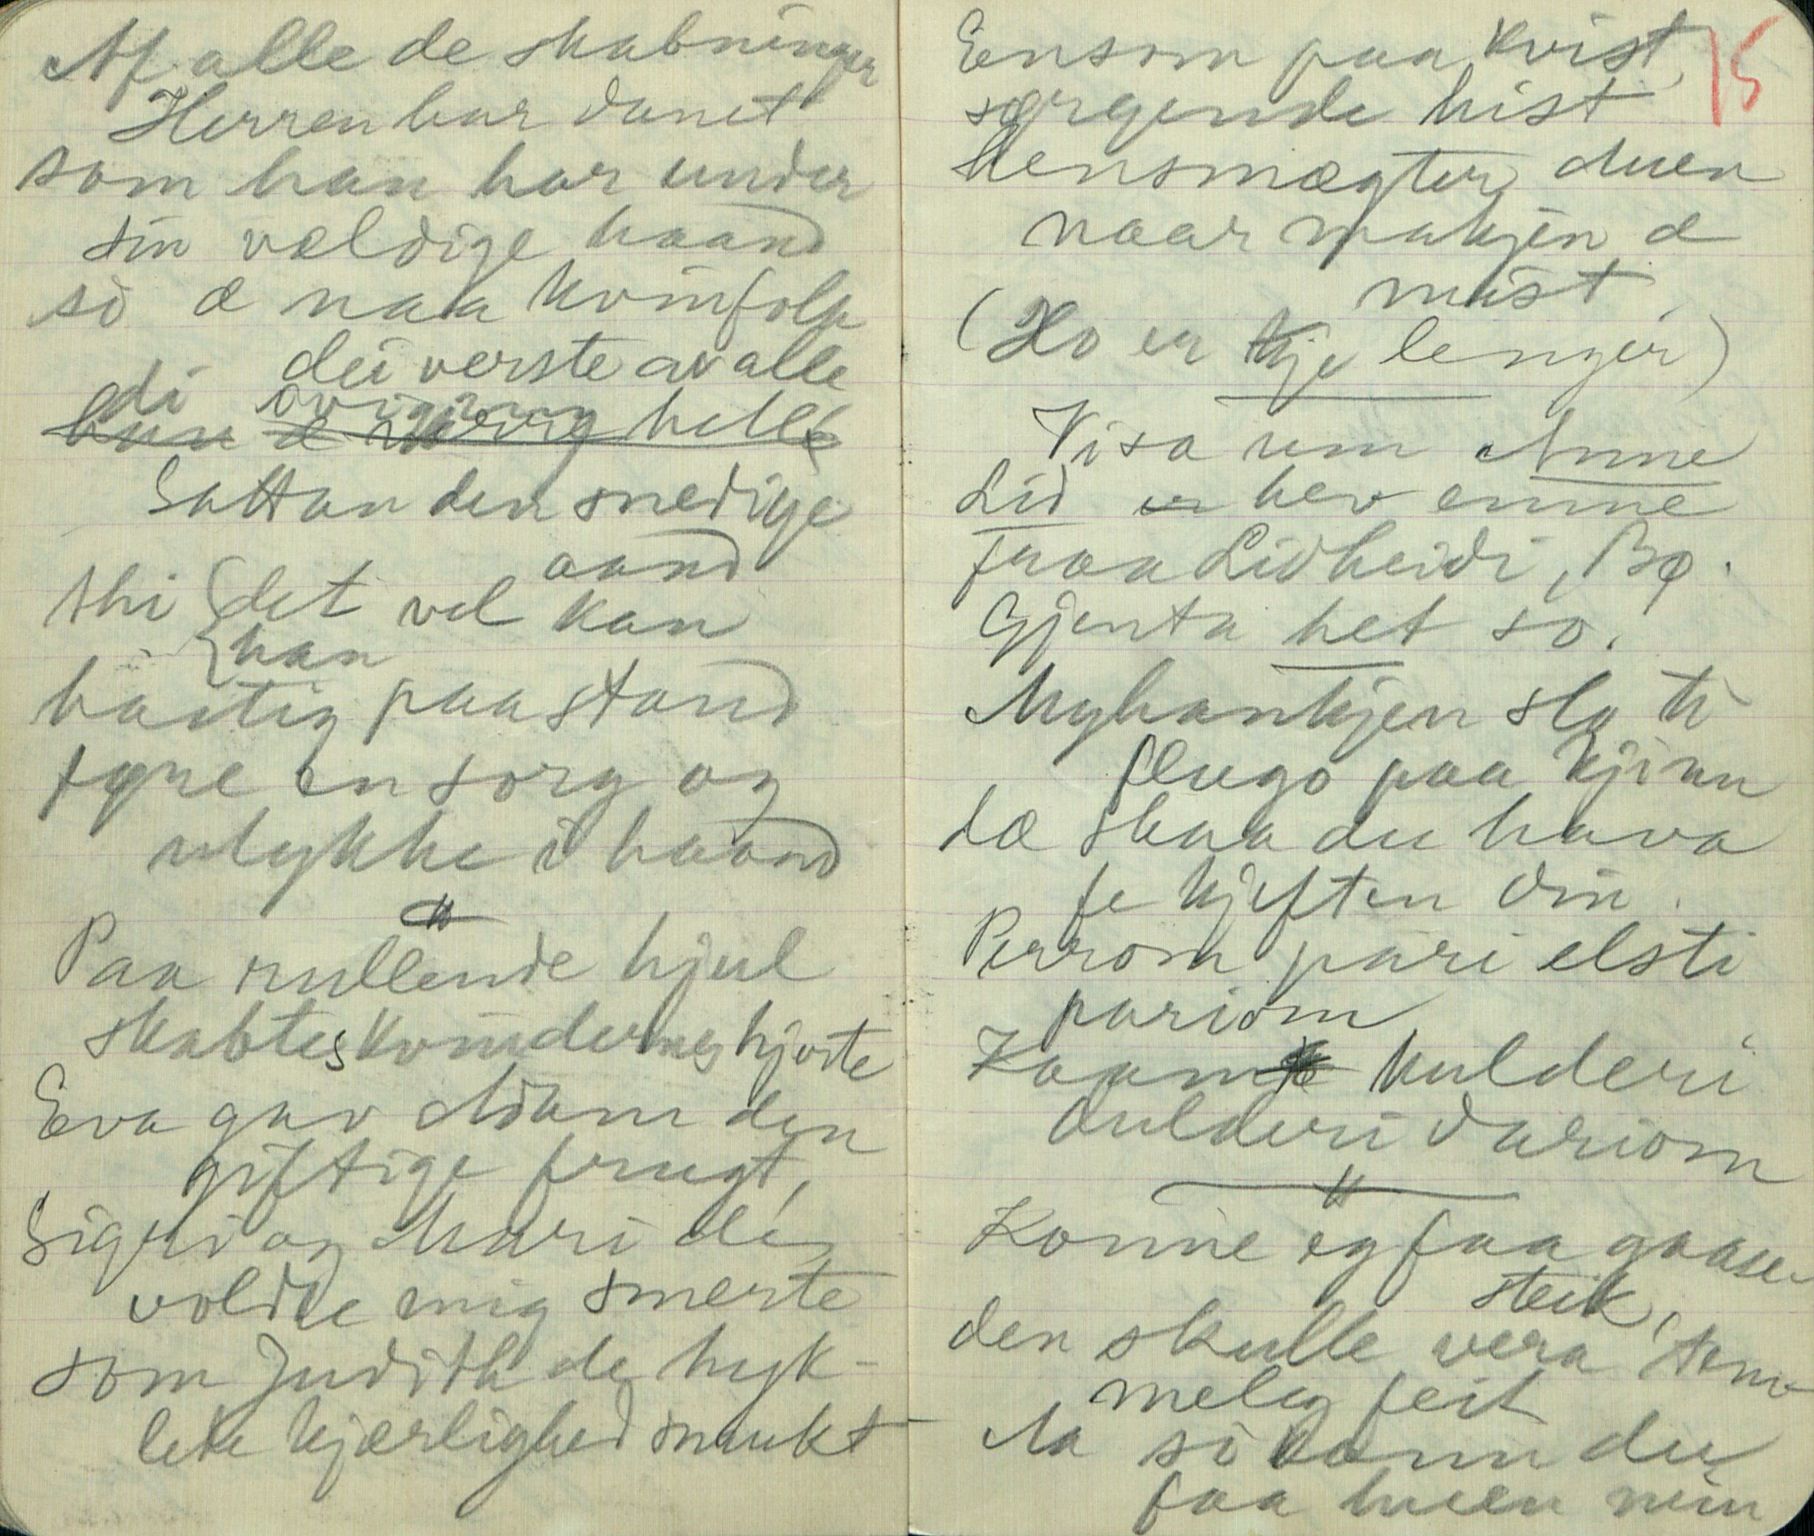 Af alle de skabninger
Herren har danet
som han har under
sin vældige haand
så æ naa kvinfolk
dei verste av alle
di
Sattan den snedige
aand
thi det vel kan
han
hastig paastand
føre en sorg og
ulykke i haand
"
Paa rullende hjul
skabtes kvindernes hjærte
Eva gav Adam den
giftige frugt,
Sigri og Mari de
voldte mig smerte
som Judith de hyk-
lete kjærlighed smukt
15
Eensom paa kvist,
sørgende hist
hensmægter duen
naar makjen æ
mist
(Ho er kje lenger)
Visa um Anne
Lid hev emne
fraa Lidheidi, Bø.
Gjenta het so.
Myhankjen slo ti
flugo paa kjinn
dæ skaa du hava
fe kjeften din.
Perrom pari elsti
pariom
Kaam kulderi
dulderi dariom
"
Konne eg faa gaase-
steik,
den skulle vera tem-
meleg feit
Aa så kann du
faa huen min